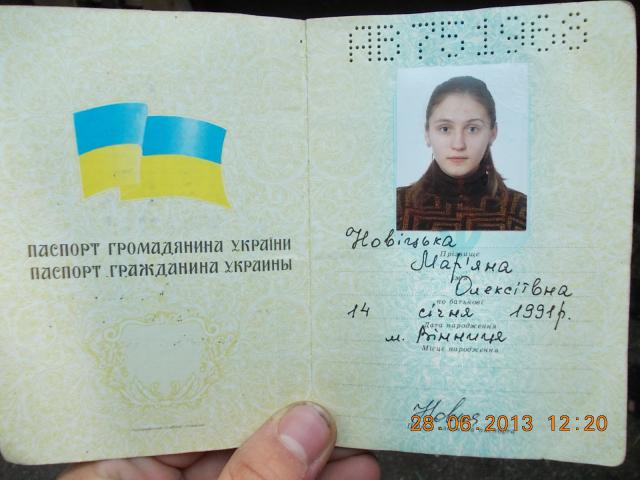 АВ751968
ПАСПОРТ ГРОМАДЯНИНА УКРАЇНИ
ПАСПОРТ ГРАЖДАНИНА УКРАИНЫ
Новіцька
Прізвище
Мар'яна
Олексіївна
по батькові
14 січня 1991р.
Дата народження
м. Вінниця
Місце народження
28.06.2013 12:20